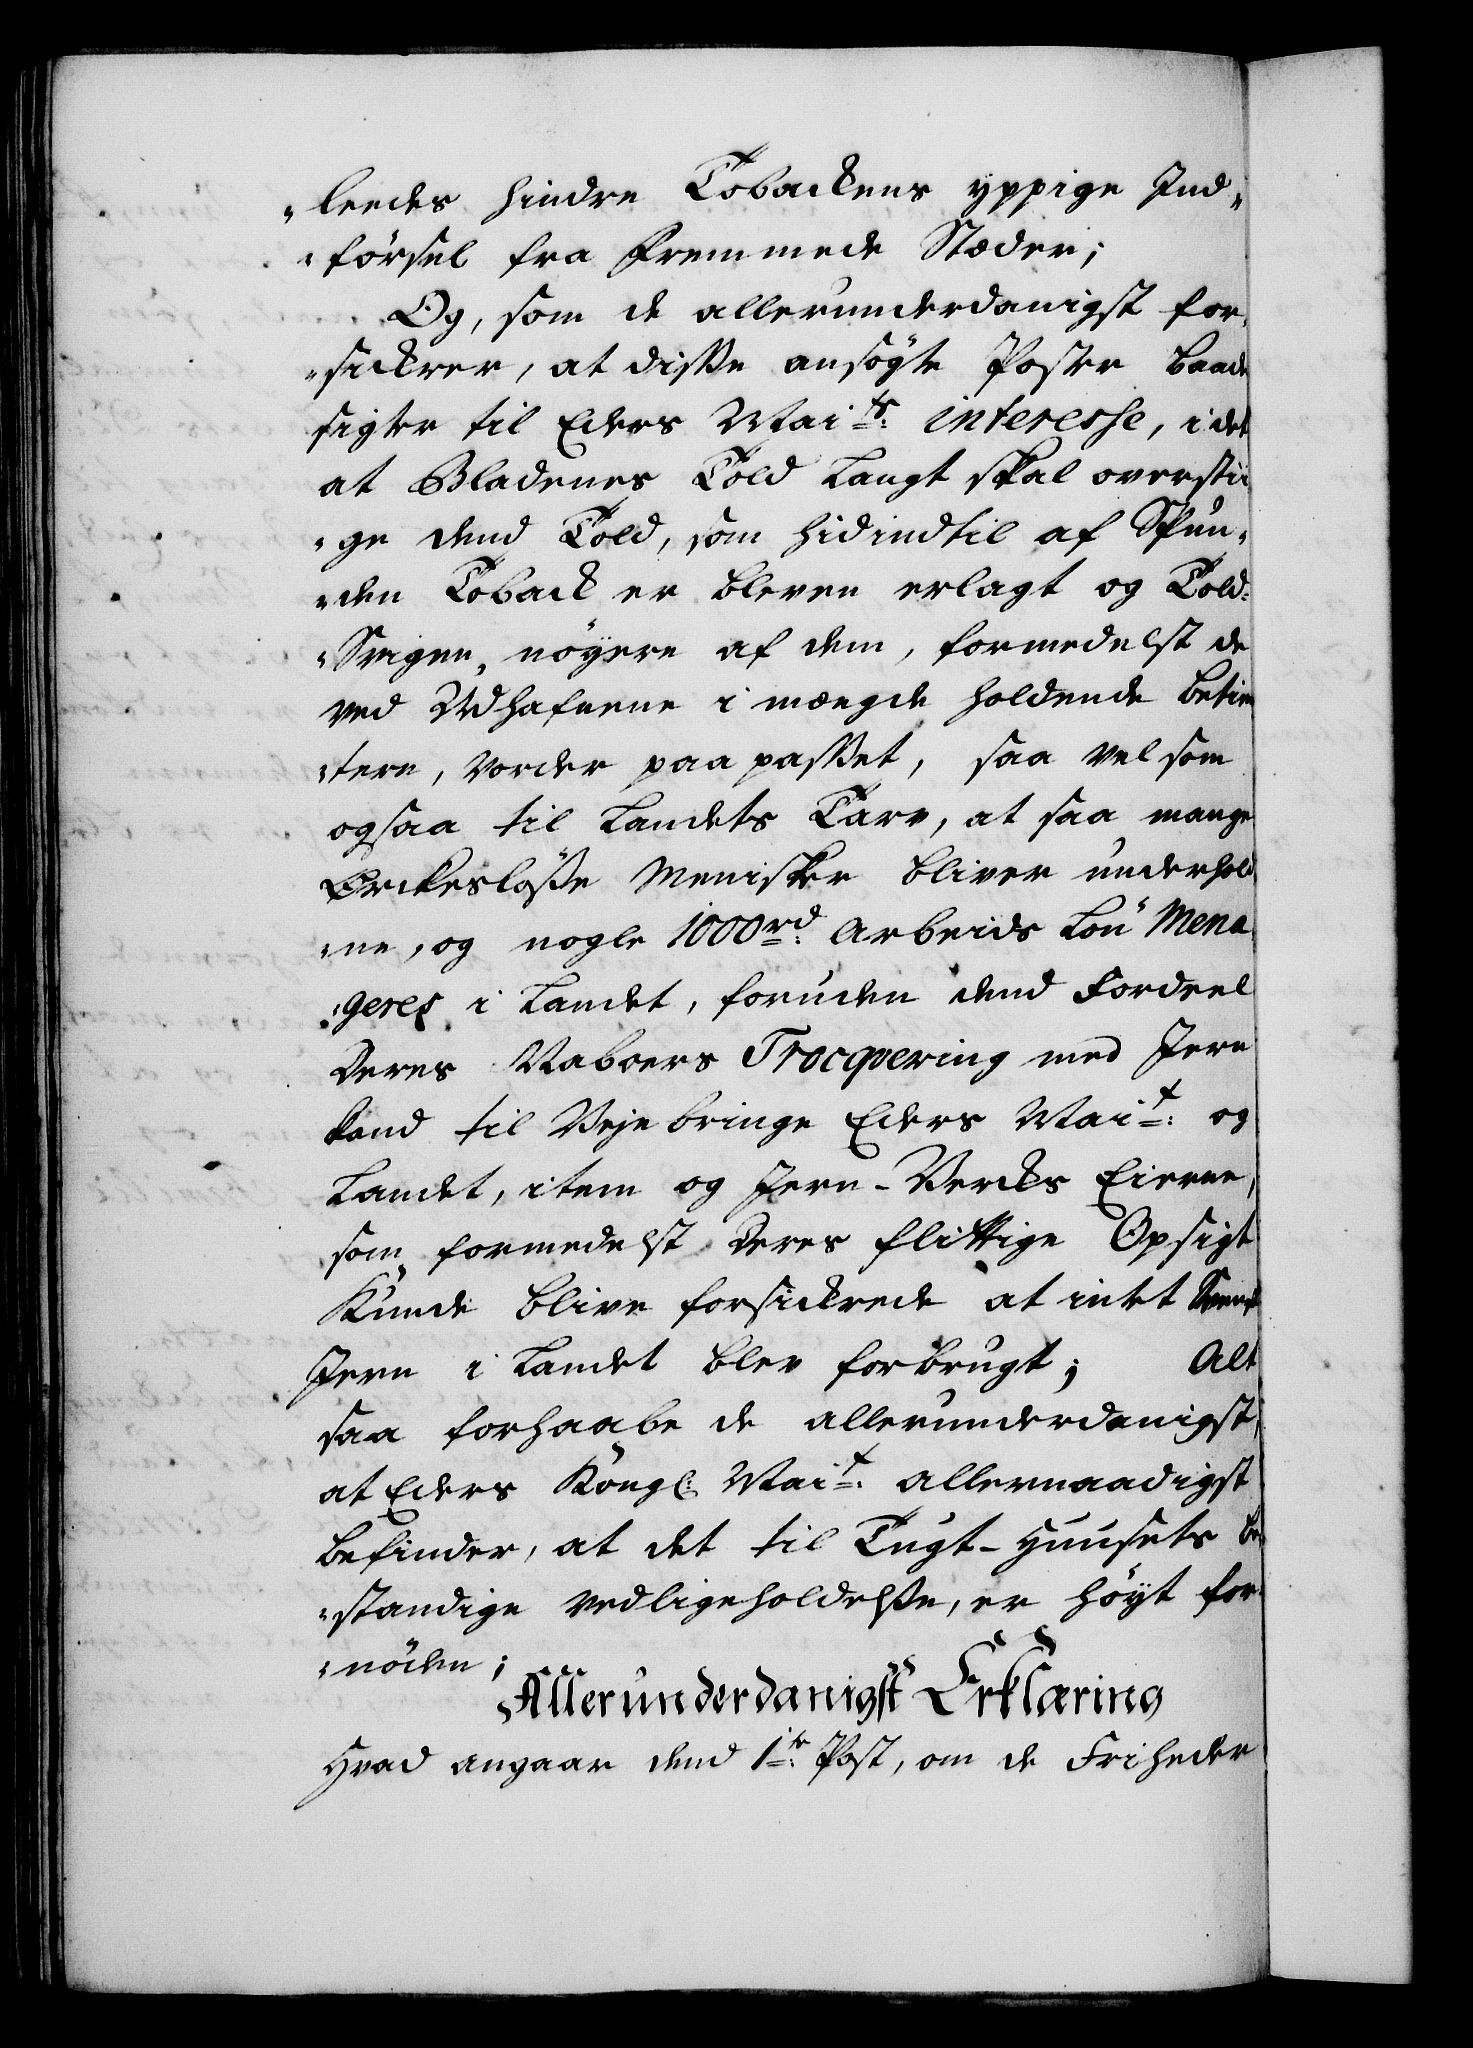 „leedes hindre Tobackens yppige Ind„
„försel fra Fremmede Stæder;
Og, som de allerunderdanigst for„
„sickrer, at disse ansögte Poster baade
sigter til Eders Mai.ts interesse, i det
at Bladenes Told langt skal overstii
„ge dend Told, som hidindtil af Spun„
„den Toback er bleven erlagt og Told-
Svigen, nöyere af dem, formedelst de
ved Udhafnene i mængde holdende betien
„tere, vorder paa passet, saa vel som
ogsaa til Landets Tarv, at saa mange
Ørckeslösse Menisker bliver underhold
„ne, og nogle 1000 rd. Arbeids Lön Mena
„geres i Landet, foruden dend Fordeel
Deres Naboers Trocqvering med Jern
kand til Veje bringe Eders Mai.t og
Landet, item og Jern-Vercks Eierne,
som formedelst deres flittige Opsigt
Kunde blive forsickrede at intet Svensk
Jern i Landet blev forbrugt; Alt
saa forhaabe de allerunderdanigst,
at Eders Kongl. Mai.t allernaadigst
befinder, at det til Tugt-Huusets be
„standige vedligeholdelsse, er höyt for
„nöden;
Allerunderdanigst Erklæring
Hvad angaar dend 1.te Post, om de Friheder